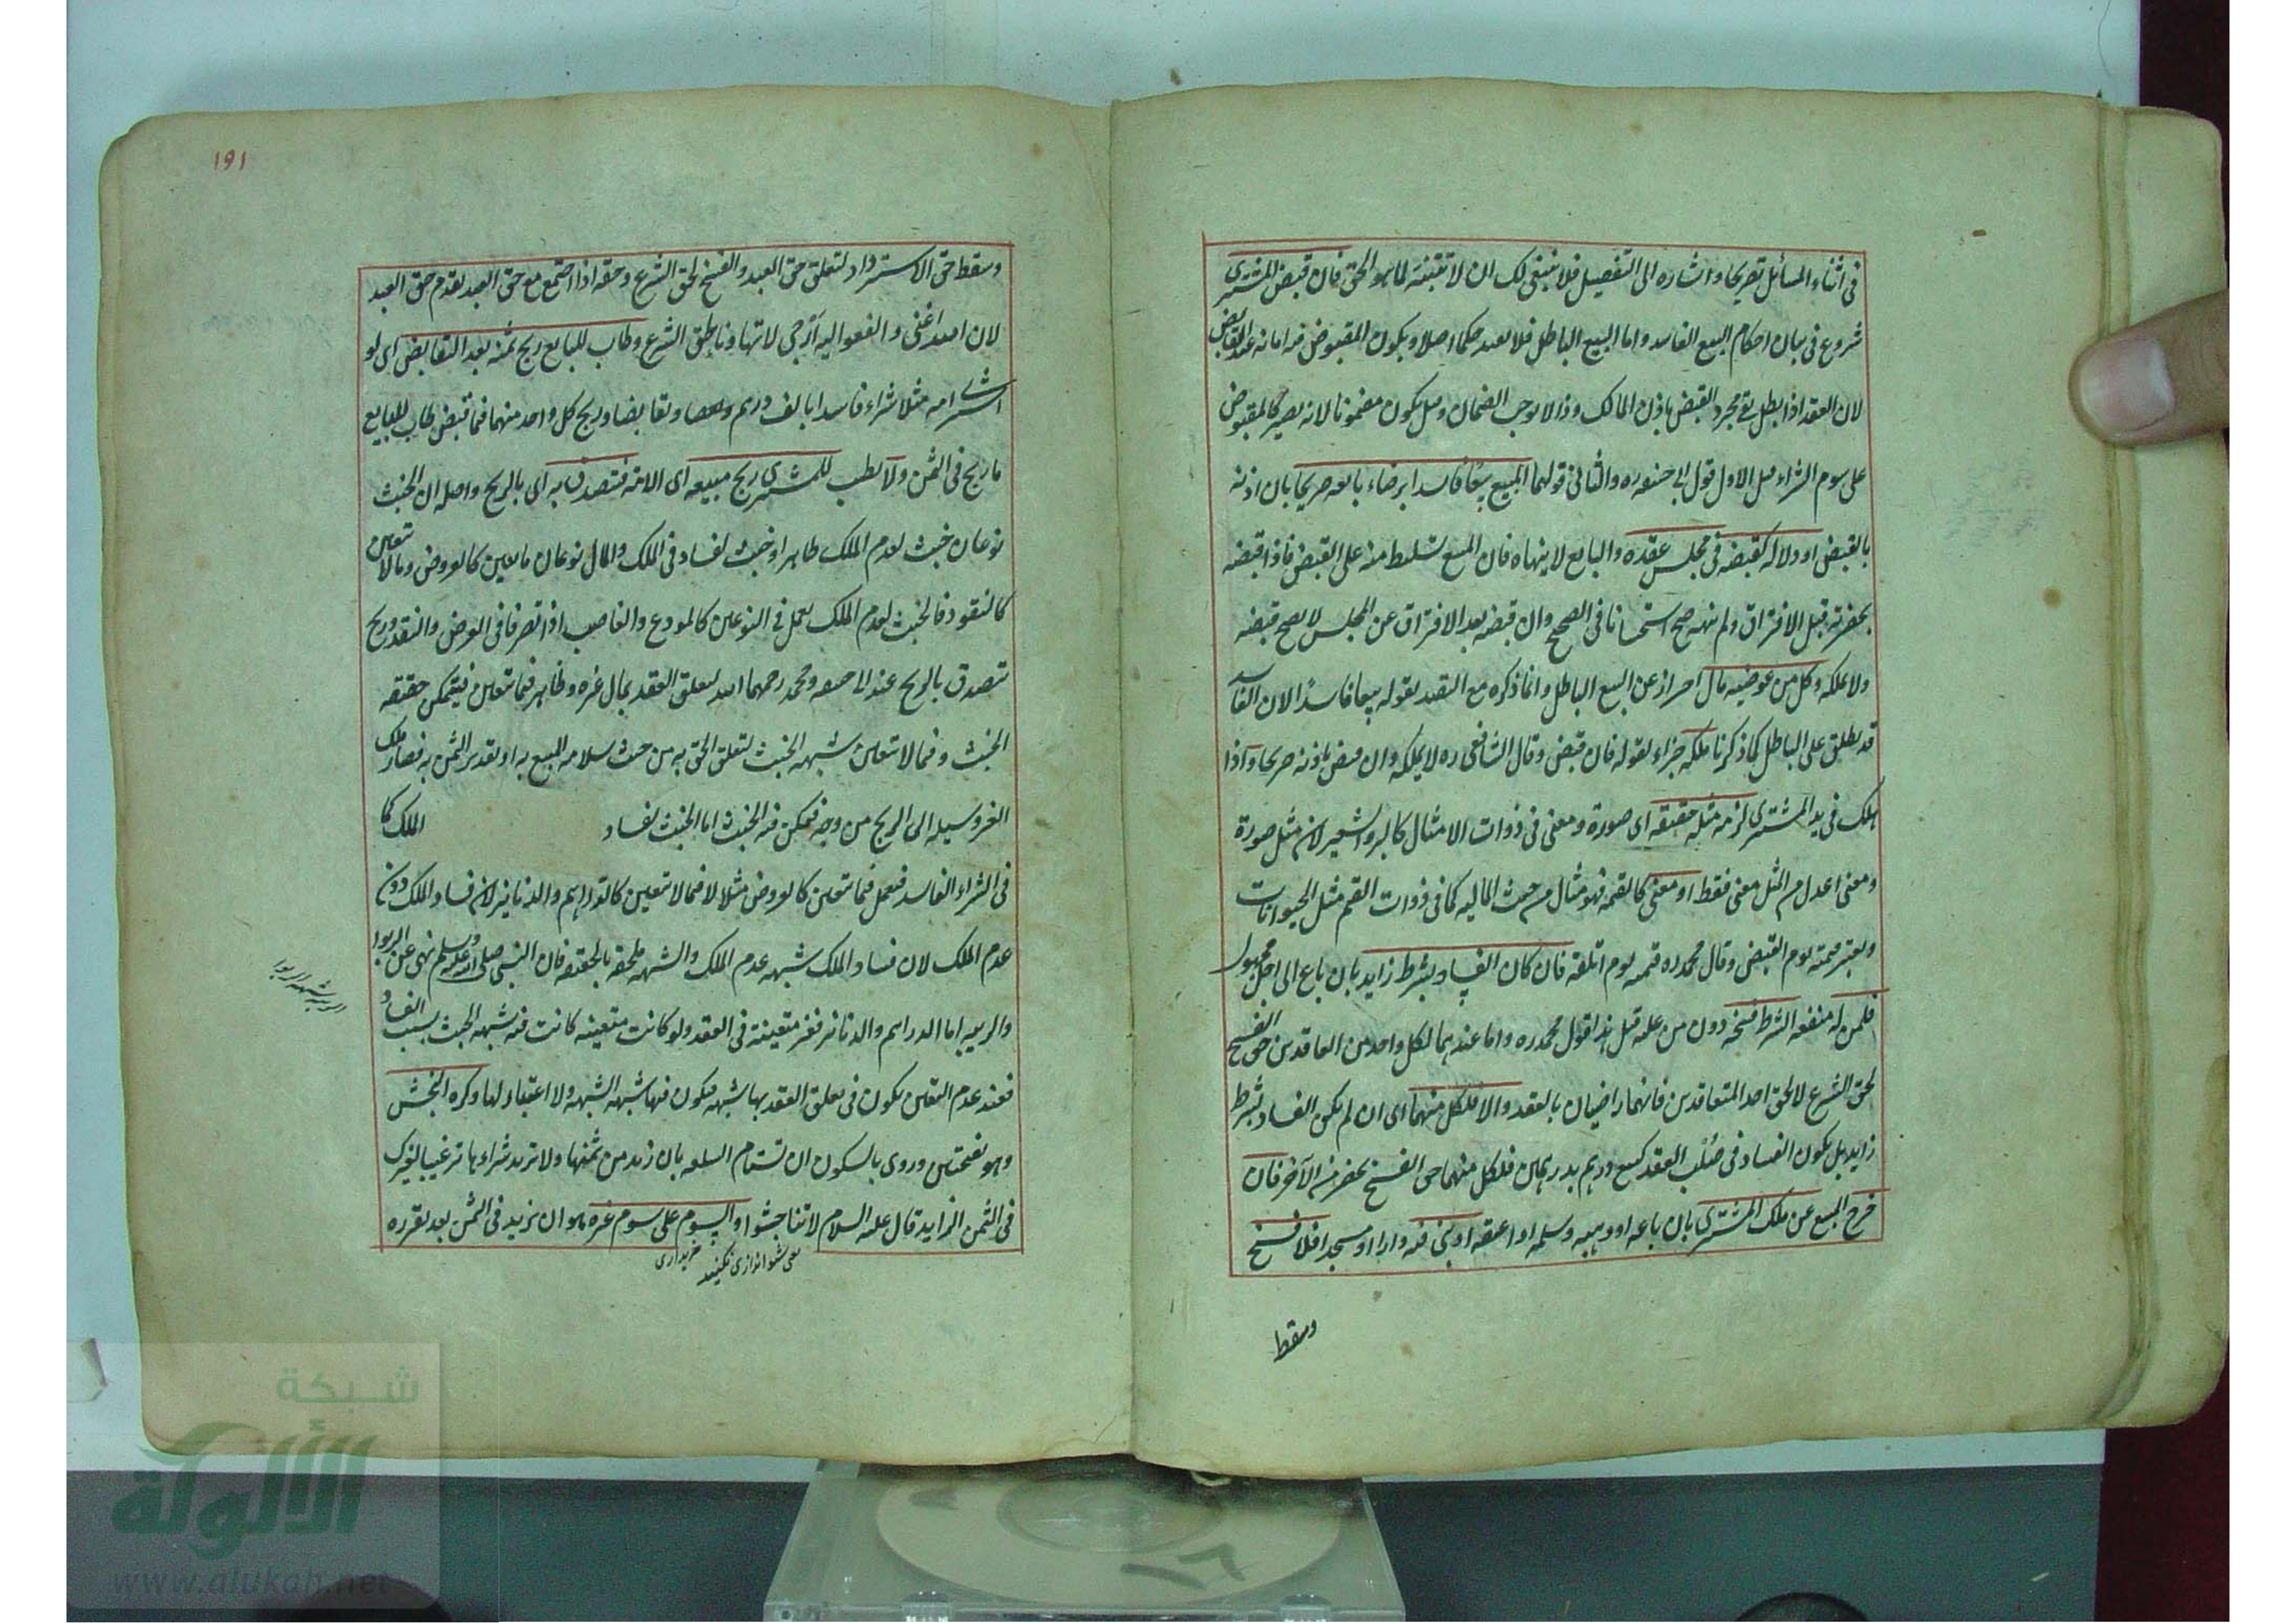 في اثناء المسائل تصريحا واشاره الى التفصيل فلا ينبغي لك ان لا تتبقنه لما هو الحق فان قبض المشتري
شروع في بيان احكام البيع الفاسد واما البيع الباطل فلا يفيد حكما اصلا ويكون المقبوض فيه امانه عند البعض
لان العقد اذا بطل بقي مجرد القبض باذن المالك وذا لا يوجب الضمان وقيل يكون مضمونا لانه يصير كالمقبوض
على سوم الشراء قيل الاول قول ابي حنيفه ره والثاني قولهما المبيع بيعا فاسدا برضاء بائعه صريحا بان اذنه
بالقبض او دلالة كقبضه في مجلس عقده والبايع لا ينهاه فان البيع تسليط منه على القبض فاذا قبضه
بحضرته قبل الافتراق ولم ينهه صح استحسانا في الصحيح وان قبضه بعد الافتراق عن المجلس لا يصح قبضه
ولا يملكه وكل من عوضيه مال احتراز عن البيع الباطل وانما ذكره مع التقييد بقوله بيعا فاسدا لان الفاسد
قد يطلق على الباطل كما ذكرنا ملكه جزاء لقوله فان قبض وقال الشافعي ره لا يملكه وان قبض باذنه صريحا واذا
هلك في يد المشتري لزمه مثله حقيقه اي صورة ومعنى في ذوات الامثال كالبر والشعير لانه مثل صورة
ومعنى اعدل من المثل معنى فقط او معنى كالقيمه فهو مثال من حيث الماليه كما في ذوات القيم مثل الحيوانات
ويعتبر قيمته يوم القبض وقال محمد ره قيمته يوم اتلفه فان كان الفساد بشرط زايد بان باع الى اجل مجهول
فلمن له منفعه الشرط فسخه دون من عليه قيل هذا قول محمد ره واما عندهما لكل واحد من العاقدين حق الفسخ
لحق الشرع لا لحق احد المتعاقدين فانهما راضيان بالعقد والا فلكل منهما اي ان لم يكن الفساد بشرط
زايد بل يكون الفساد في صلب العقد كبيع درهم بدرهمين فلكل منهما حق الفسخ بحضرة الآخر فان
خرج المبيع عن ملك المشتري بان باعه او وهبه وسلمه او اعتقه او بنى فيه دارا او مسجدا فلا فسخ
وسقط
١٩١
وسقط حق الاسترداد لتعلق حق العبد والفسخ لحق الشرع وحقه اذا اجتمع مع حق العبد يقدم حق العبد
لان الله اغنى والعفو اليه ارجى لا تهاونا بحق الشرع وطاب للبايع ربح ثمنه بعد التقابض اي لو
اشترى امه مثلا شراء فاسدا بالف درهم وتقابضا وربح كل واحد منهما فيما قبض طاب للبايع
ما ربح في الثمن ولا يطيب للمشتري ربح مبيعه اي الامة فتصدق به اي بالربح واصله ان الخبث
نوعان خبث لعدم الملك ظاهرا وخبث لفساد في الملك والمال نوعان ما يتعين كالعروض وما لا يتعين
كالنقود فالخبث لعدم الملك يعمل في النوعين كالمودع والغاصب اذا تصرفا في العرض والنقد وربح
تتصدق بالربح عند ابي حنيفه ومحمد رحمهما الله لتعلق العقد بمال غيره وظاهر فيما يتعين فيتمكن حقيقه
الخبث وفيما لا يتعين شبهه الخبث لتعلق الحق به من حيث سلامه المبيع به او تقدير الثمن به فصار ملك
الغير وسيله الى الربح من وجه فيمكن فيه الخبث اما الخبث لفساد الملك كما
في الشراء الفاسد فيعمل فيما يتعين كالعروض مثلا لا فيما لا يتعين كالدراهم والدنانير لان فساد الملك دون
عدم الملك لان فساد الملك شبهه عدم الملك والشبهه ملحقه بالحقيقه فان النبي صلى الله عليه وسلم نهى عن الربوا
والريبه اما الدراهم والدنانير فغير متعينة في العقد ولو كانت متعينه كانت فيه شبهه الخبث بسبب الفساد
فعند عدم التعين يكون في تعلق العقد بها شبهه فيكون فيها شبهه الشبهه ولا اعتبار لها وكره النجش
وهو بفتحتين وروى بالسكون ان تستام السلعه بان زيد من ثمنها ولا تريد شراءها ترغيبا لغيرك
في الثمن الزايد قال عليه السلام لا تناجشوا والسوم على سوم غيره هو ان يزيد في الثمن بعد تقرره
الريبه شبهه الربوا
يعني شوا اندازي نكنيد خريداري
شبكة
الألوكة
www.alukah.net